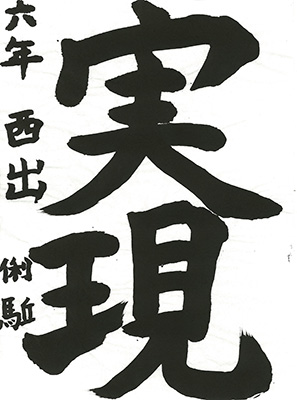 実現
六年 西出 俐駈